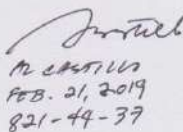 M CASTILLO
FEB. 21, 2019
821-44-37